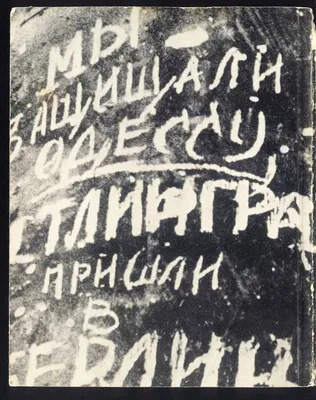 МЫ
ЗАЩИЩАЛИ
ОДЕССУ,
СТЛИНГРА
ПРИШЛИ
В
БЕРЛИН